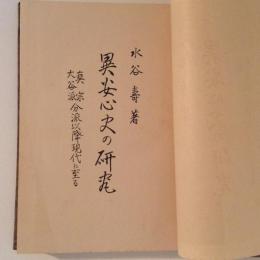 水谷寿著
異安心史の研究
真宗分派以降現代に至る
大谷派